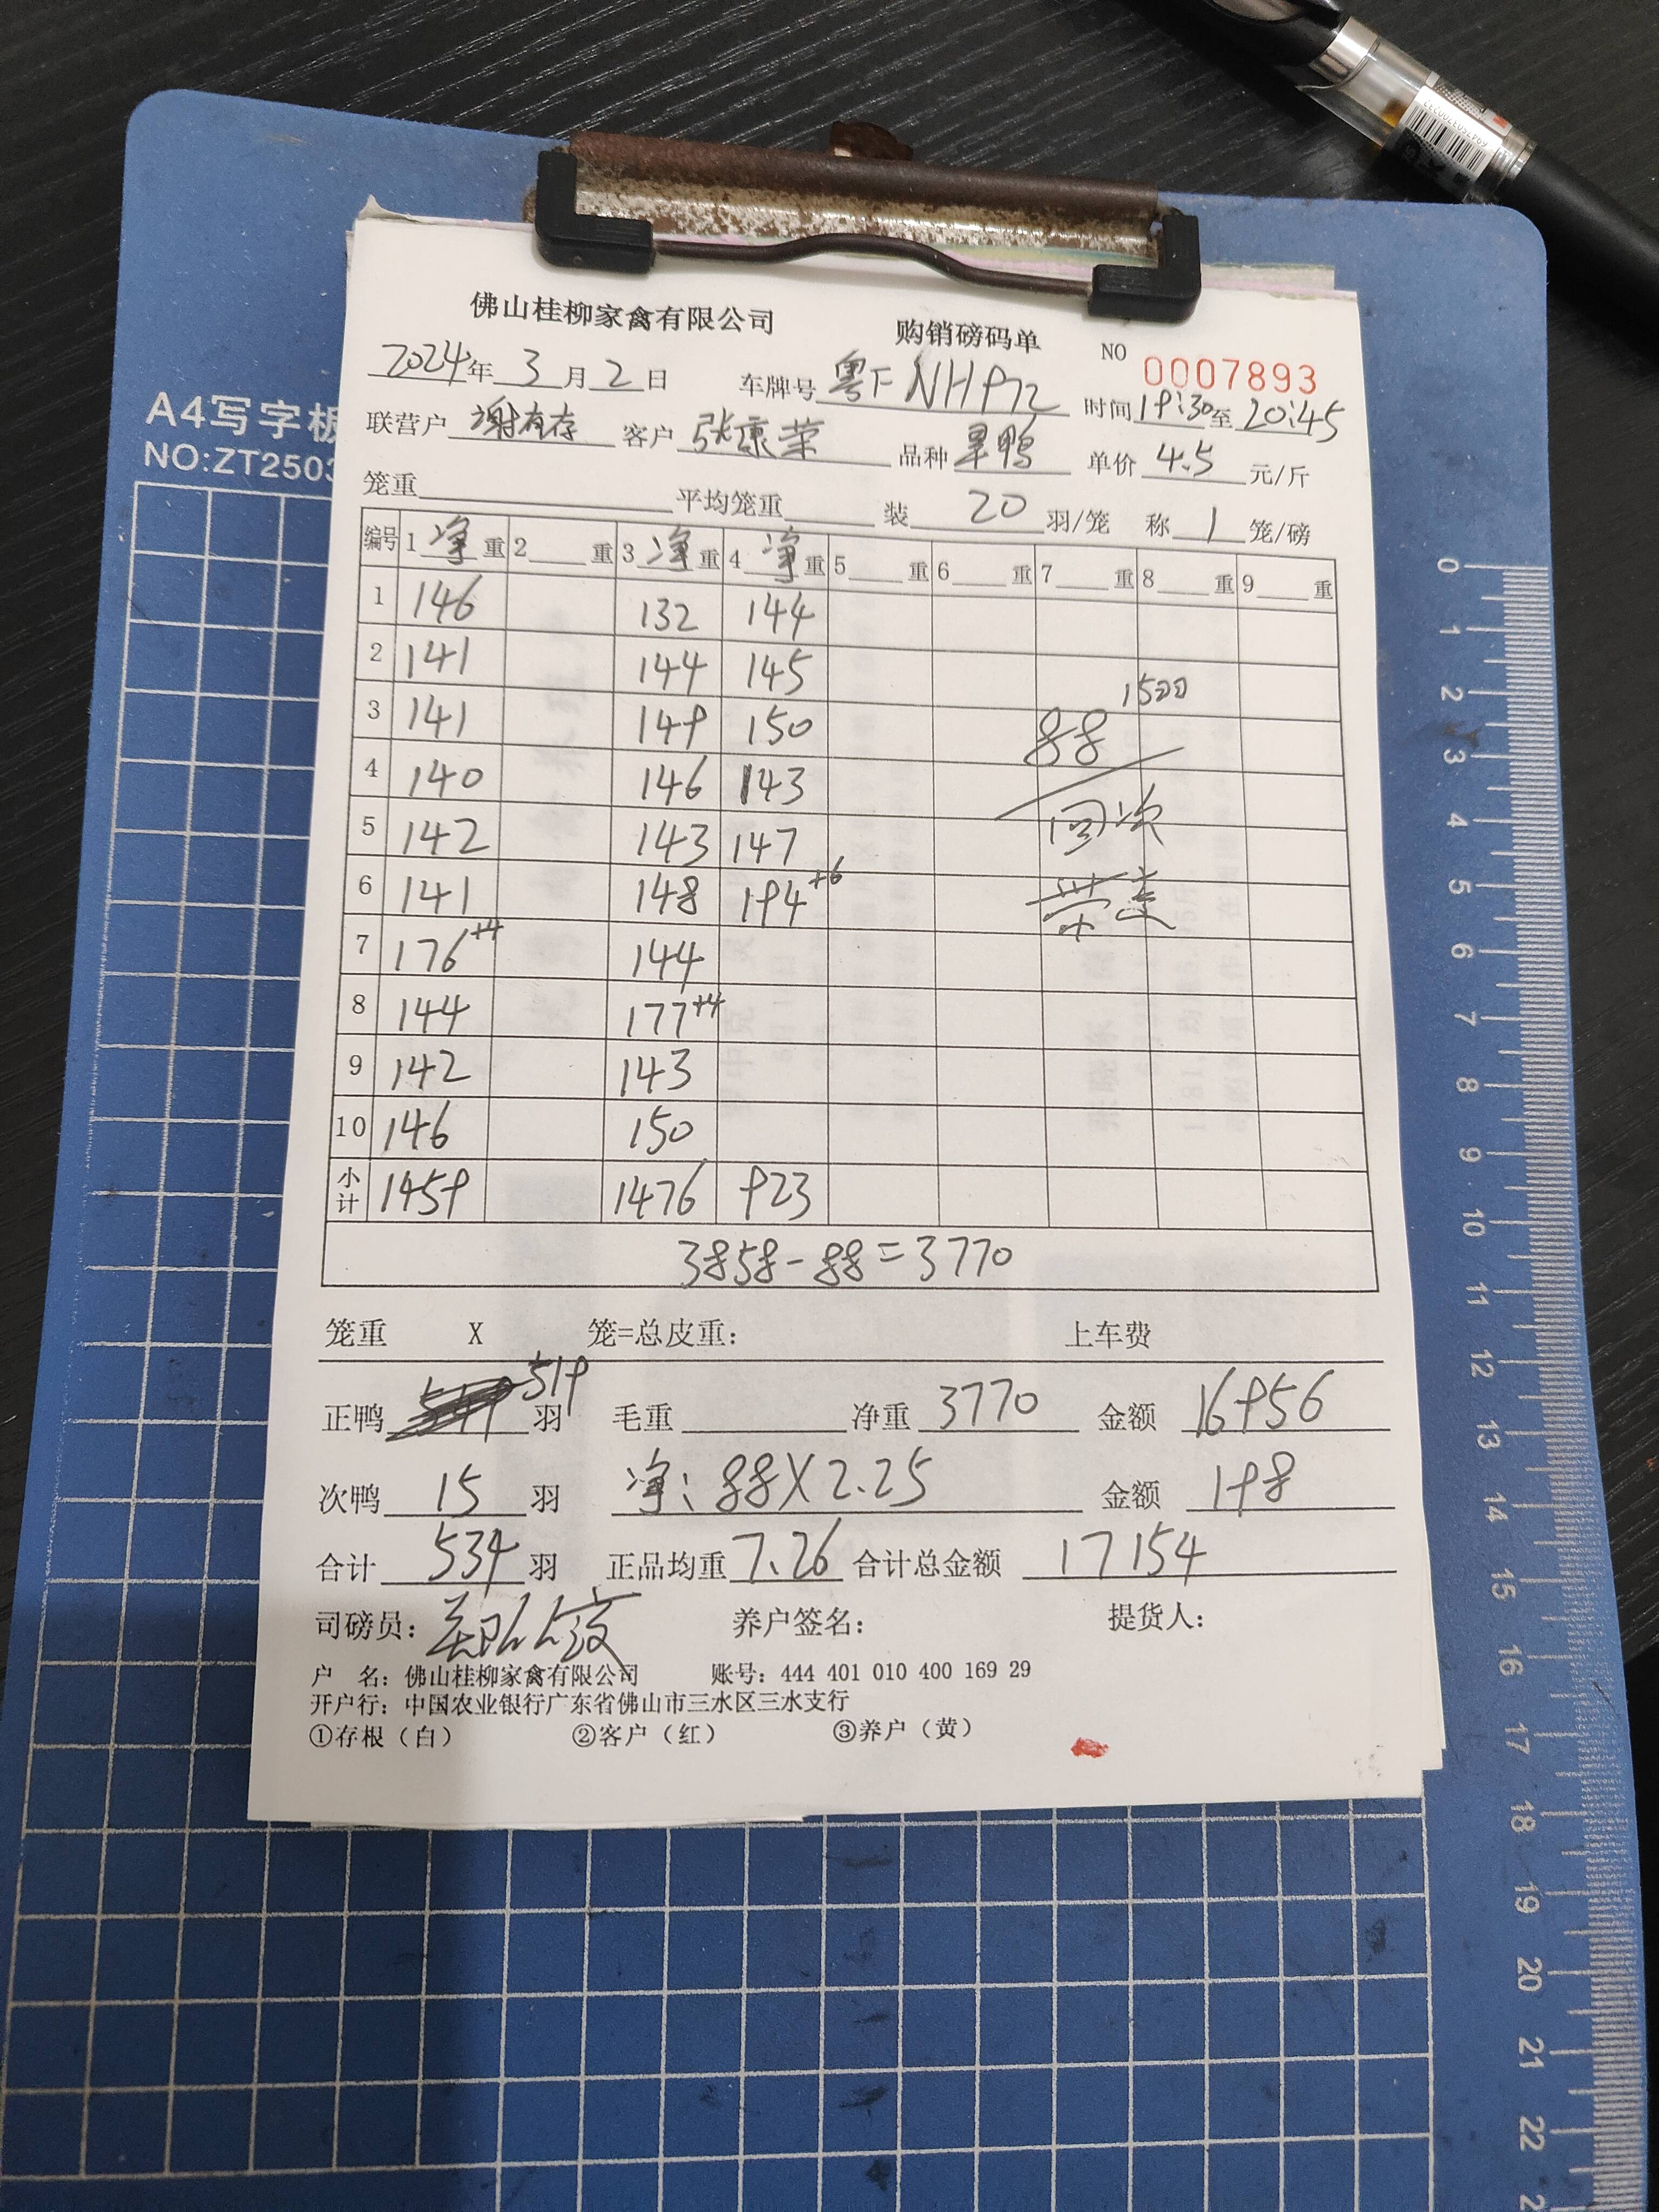 佛山桂柳家禽有限公司 购销磅码单 NO 0007893
2024年 3月 2日 车牌号 粤F NHP72 时间 19:30 至 20:45
联营户 谢有存 客户 张康荣 品种 旱鸭 单价 4.5 元/斤
笼重 平均笼重 装 20 羽/笼 称 1 笼/磅
编号 1 净 重 2 重 3 净 重 4 净 重 5 重 6 重 7 重 8 重 9 重
1 146 132 144
2 141 144 145
15羽
3 141 149 150 88
4 140 146 143 回次
5 142 143 147
6 141 148 194+6
7 176+4 144
8 144 177+4
9 142 143
10 146 150
小计 1459 1476 923
3858-88=3770
笼重 X 笼=总皮重: 上车费
正鸭 519 羽 毛重 净重 3770 金额 16956
次鸭 15 羽 净: 88X2.25 金额 198
合计 534 羽 正品均重 7.26 合计总金额 17154
司磅员: 养户签名: 提货人:
户 名: 佛山桂柳家禽有限公司 账号: 444 401 010 400 169 29
开户行: 中国农业银行广东省佛山市三水区三水支行
①存根(白) ②客户(红) ③养户(黄)
A4写字板
NO:ZT2503
0
1
2
3
4
5
6
7
8
9
10
11
12
13
14
15
16
17
18
19
20
21
22